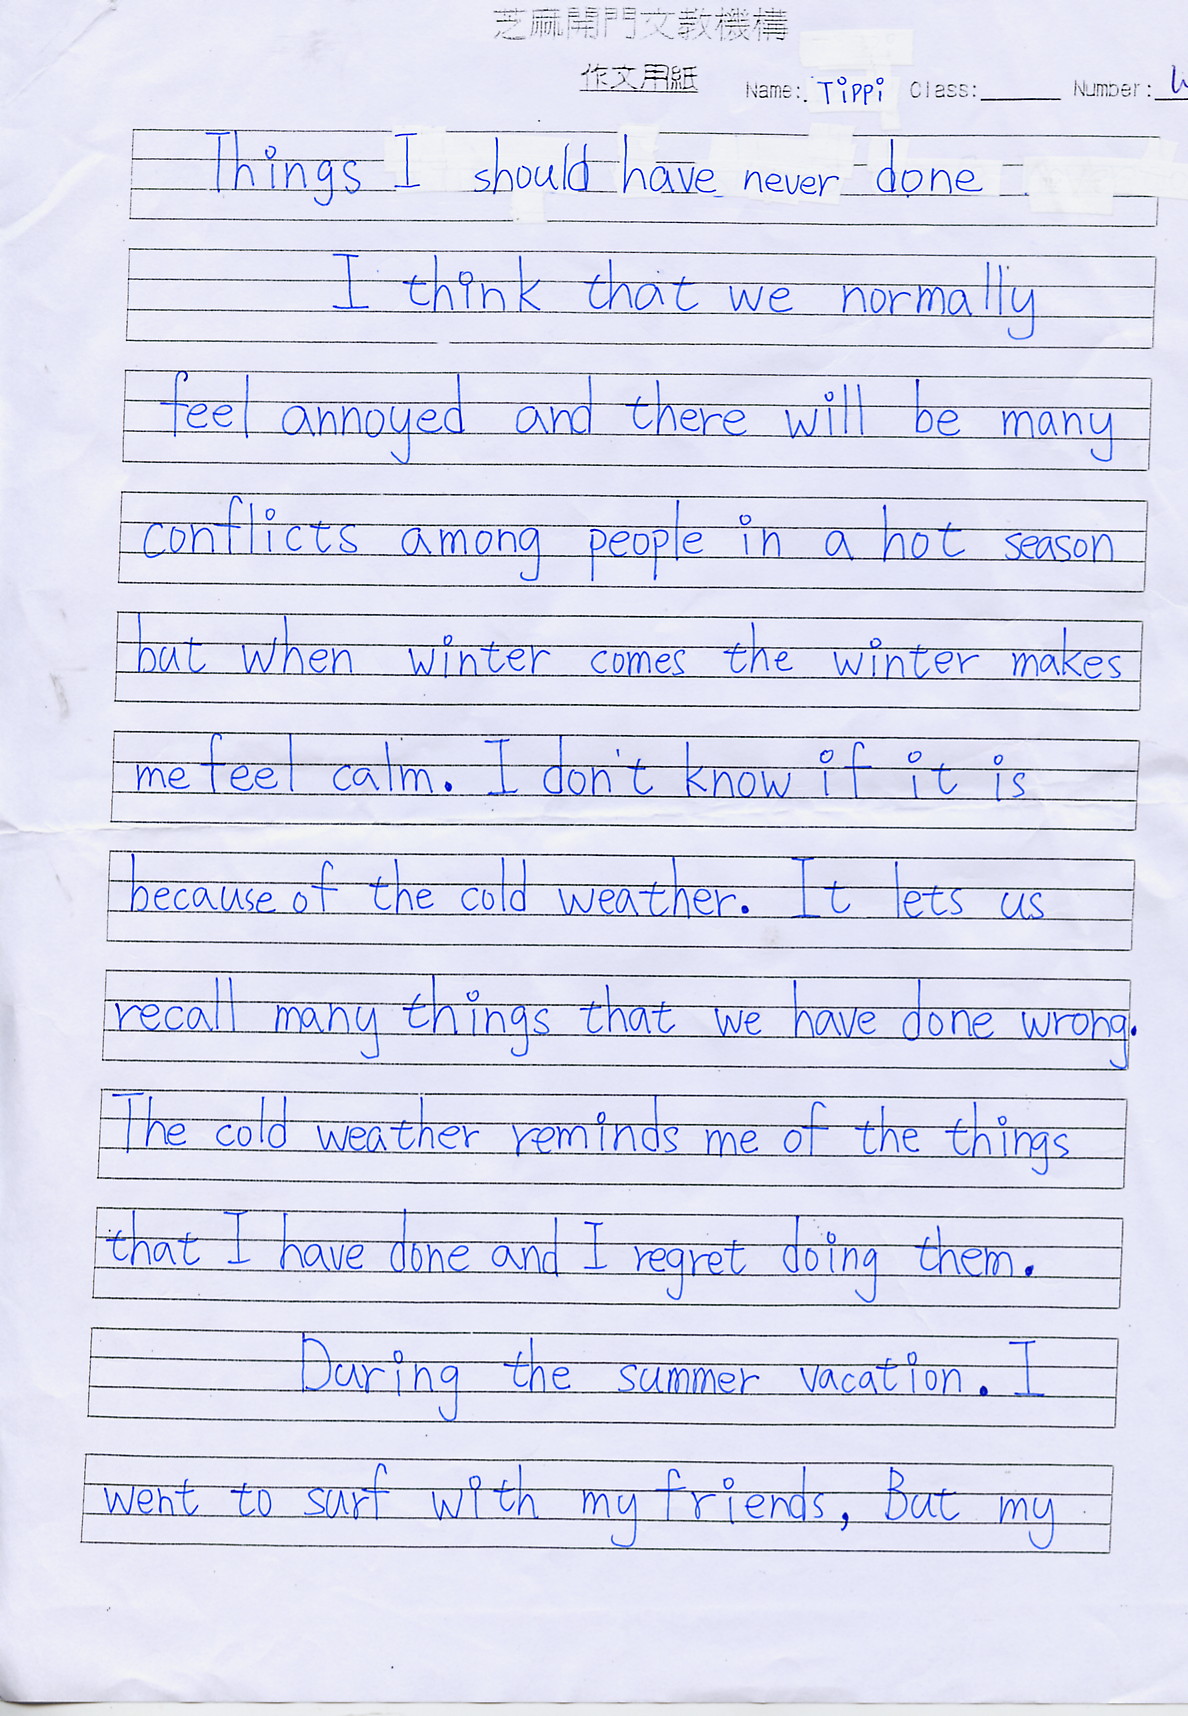 芝麻開門文教機構
作文用紙 Name: Tippi Class: Number:
Things I should have never done
I think that we normally
feel annoyed and there will be many
conflicts among people in a hot season
but when winter comes the winter makes
me feel calm. I don't know if it is
because of the cold weather. It lets us
recall many things that we have done wrong.
The cold weather reminds me of the things
that I have done and I regret doing them.
During the summer vacation. I
went to surf with my friends, But my